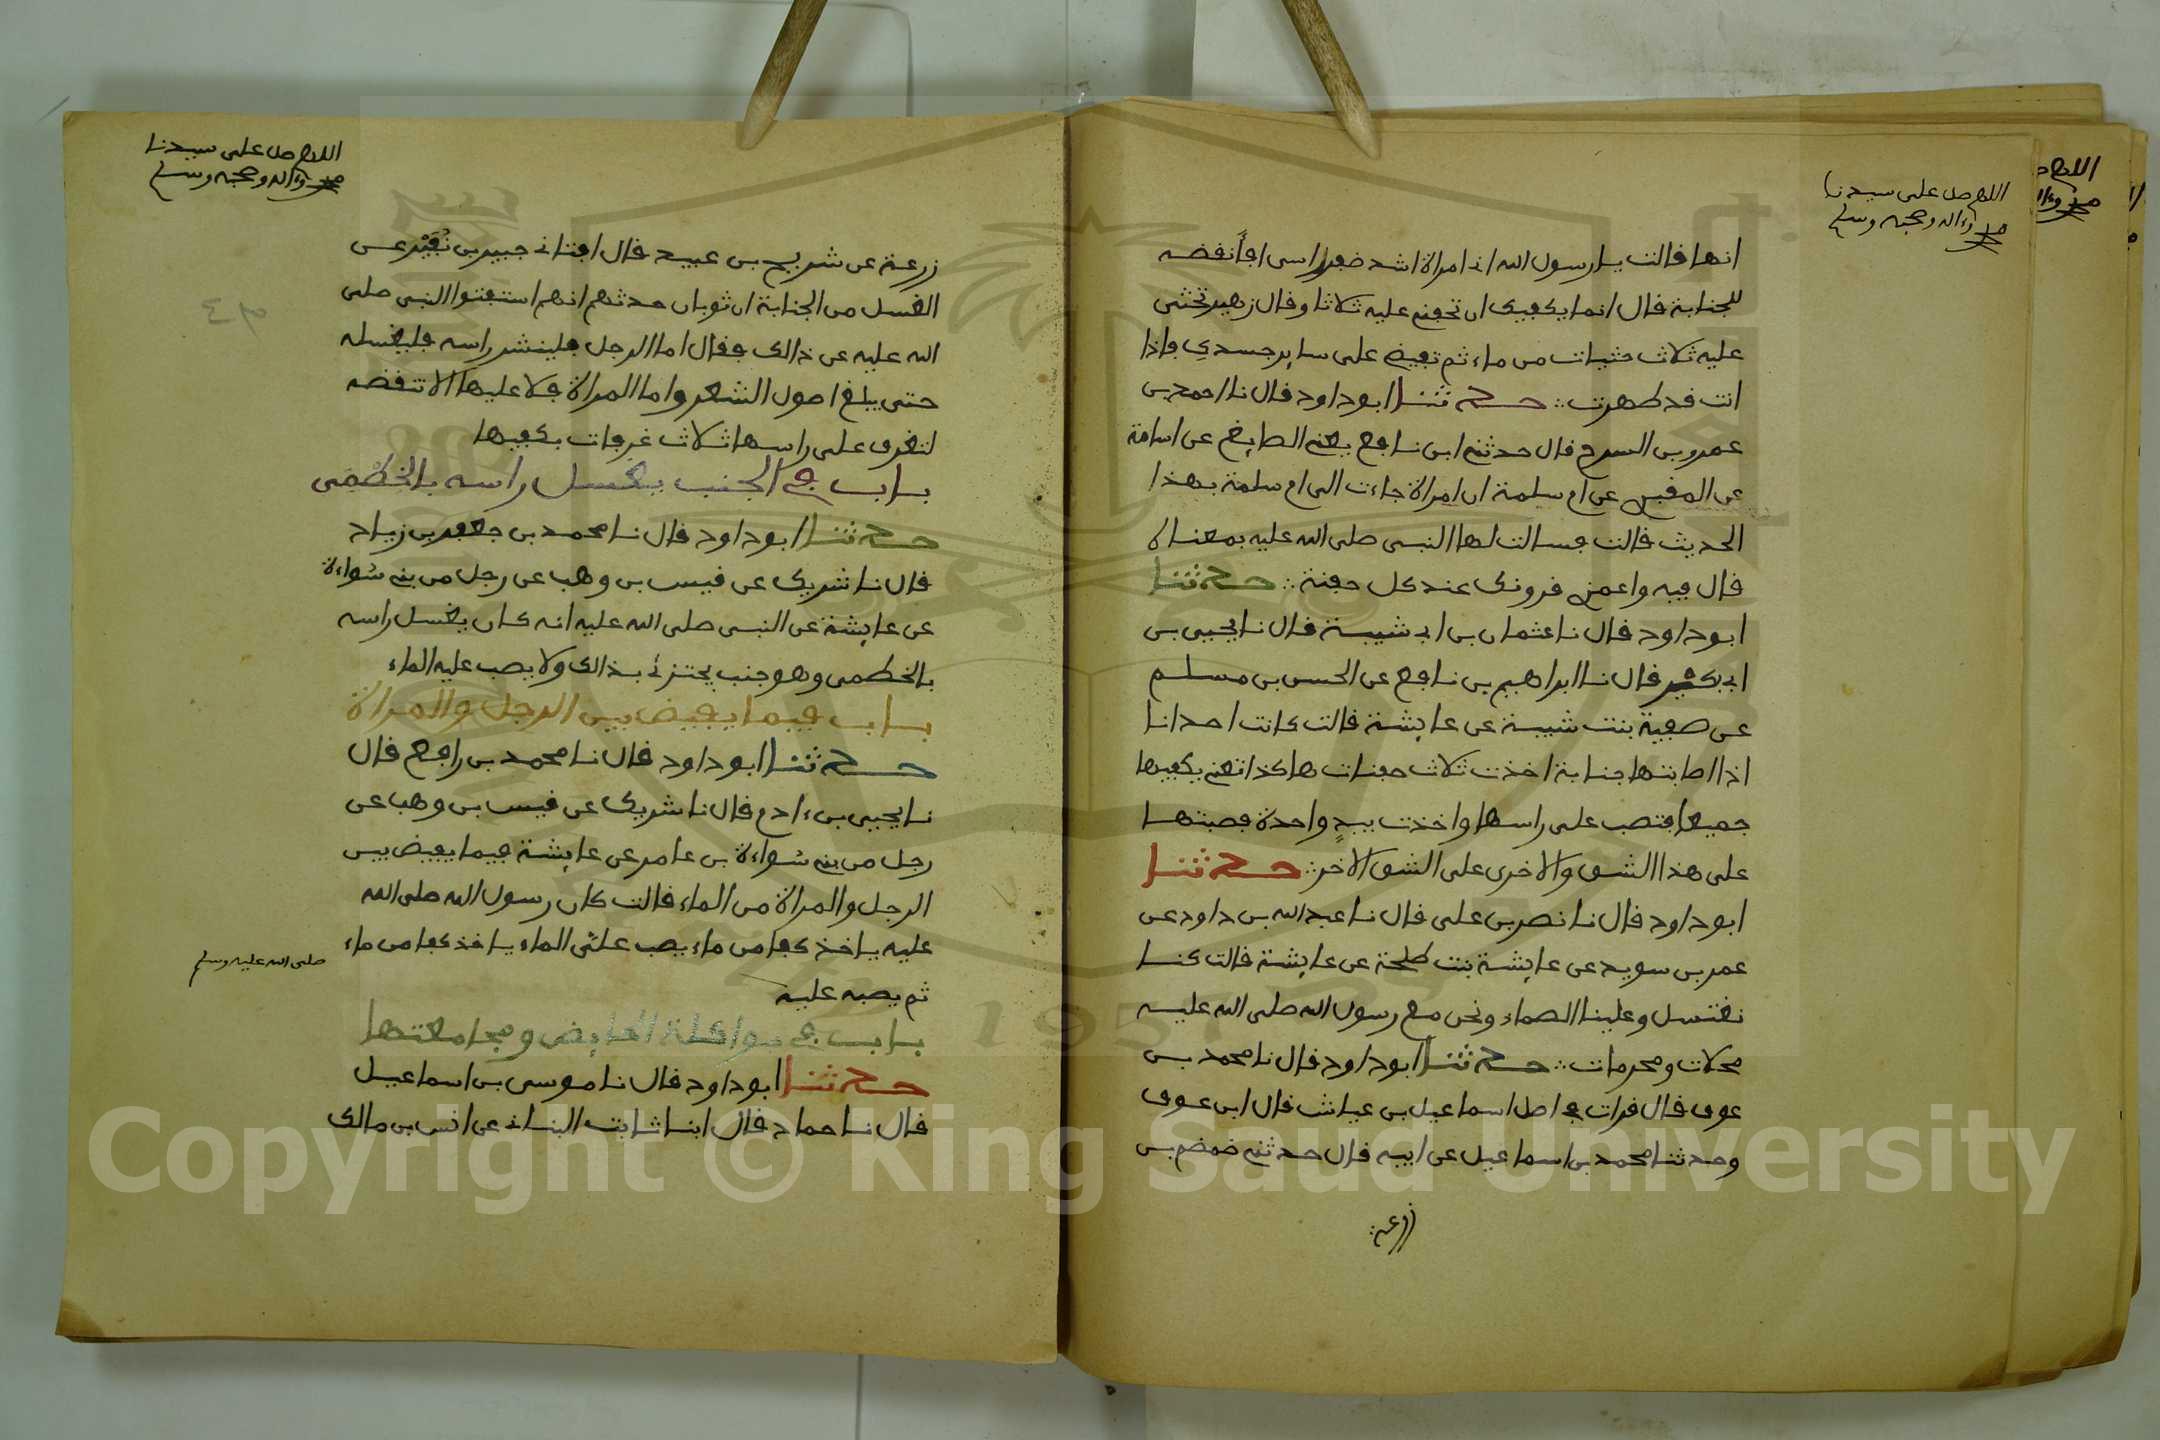 اللهم صل على سيدنا
محمد وءاله وصحبه وسلم
انها قالت يا رسول الله اني امراة اشد ضفر راسي افأنقضه
للجنابة قال انما يكفيك ان تحفني عليه ثلاثا وقال زهير تحثي
عليه ثلاث حثيات من ماء ثم تفيضي على ساير جسدي فاذا
انت قد طهرت ∴ حـدثنا ابو داود قال نا احمد بن
عمرو بن السرح قال حدثني ابن نافع يعني الصايغ عن اسامة
عن المقبري عن ام سلمة ان امراة جاءت الى ام سلمة بهذا
الحديث قالت فسالت لها النبي صلى الله عليه بمعناه
قال فيه واغمزي قرونك عند كل حفنة ∴ حـدثنا
ابو داود قال نا عثمان بن ابي شيبة قال نا يحيى بن
ابي بكير قال نا ابراهيم بن نافع عن الحسن بن مسلم
عن صفية بنت شيبة عن عايشة قالت كانت احدانا
اذا اصابتها جنابة اخذت ثلاث حفنات هاكذا تعني بكفيها
جميعا فتصب على راسها واخذت بيدٍ واحدة فصبتها
على هذا الشق والاخرى على الشق الاخر ∴ حـدثنا
ابو داود قال نا نصر بن علي قال نا عبد الله بن داود عن
عمر بن سويد عن عايشة بنت طلحة عن عايشة قالت كنا
نغتسل وعلينا الضماد ونحن مع رسول الله صلى الله عليه
محلات ومحرمات ∴ حـدثنا ابو داود قال نا محمد بن
عوف قال قرات في اصل اسماعيل بن عياش قال ابن عوف
وحدثنا محمد بن اسماعيل عن ابيه قال حدثني ضمضم بن
زرعة
اللهم صل على سيدنا
محمد وءاله وصحبه وسلم
زرعة عن شريح بن عبيد قال افتاني جبير بن نُفَيْر عن
الغسل من الجنابة ان ثوبان حدثهم انهم استفتوا النبي صلى
الله عليه عن ذالك فقال اما الرجل فلينشر راسه فليغسله
حتى يبلغ اصول الشعر واما المراة فلا عليها الا تنقضه
لتغرف على راسها ثلاث غرفات بكفيها
باب في الجنب يغسل راسه بالخطمي
حـدثنا ابو داود قال نا محمد بن جعفر بن زياد
قال نا شريك عن قيس بن وهب عن رجل من بني سُواءة
عن عايشة عن النبي صلى الله عليه انه كان يغسل راسه
بالخطمي وهو جنب يجتزئ بذالك ولا يصب عليه الماء
باب فيما يفيض بين الرجل والمراة
حـدثنا ابو داود قال نا محمد بن رافع قال
نا يحيى بن ءادم قال نا شريك عن قيس بن وهب عن
رجل من بني سُواءة بن عامر عن عايشة فيما يفيض بين
الرجل والمراة من الماء قالت كان رسول الله صلى الله
عليه ياخذ كفا من ماء يصب علي الماء ياخذ كفا من ماء
صلى الله عليه وسلم
ثم يصبه عليه
باب في مواكلة الحايض ومجامعتها
حـدثنا ابو داود قال نا موسى بن اسماعيل
قال نا حماد قال انبا ثابت البناني عن انس بن مالك
1957
Copyright © King Saud University